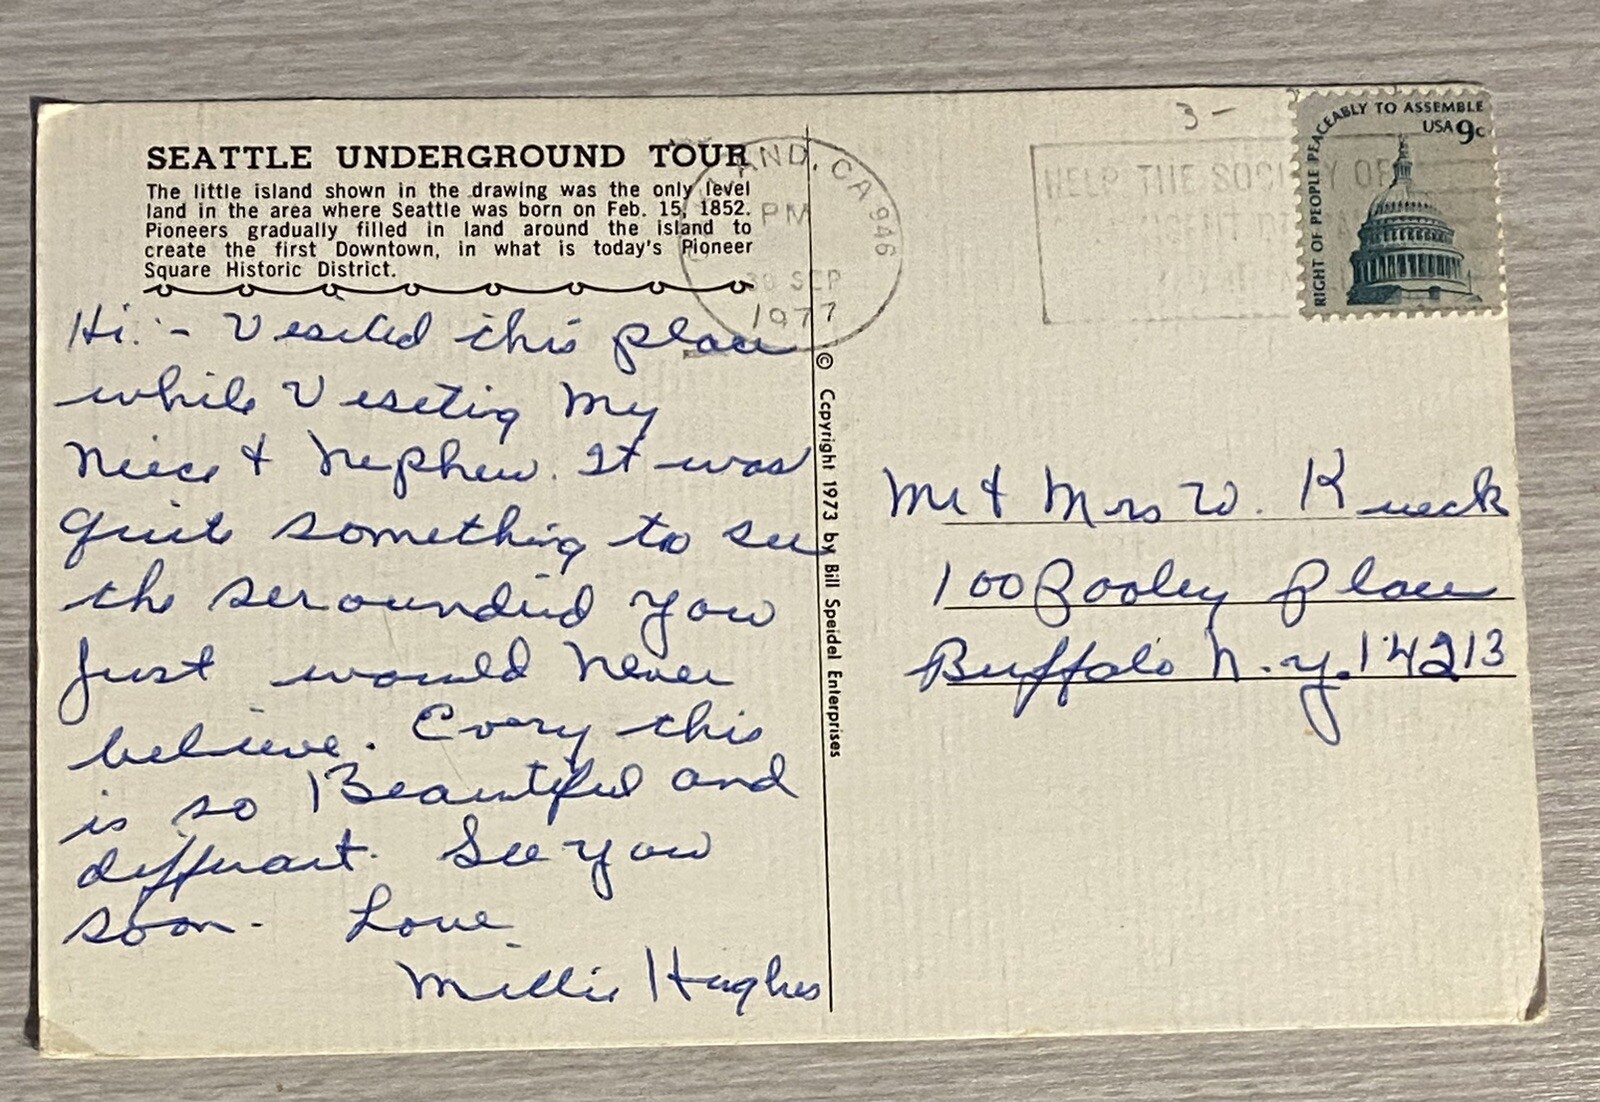 SEATTLE UNDERGROUND TOUR
The little island shown in the drawing was the only level
land in the area where Seattle was born on Feb. 15, 1852.
Pioneers gradually filled in land around the island to
create the first Downtown, in what is today's Pioneer
Square Historic District.
Hi. - Vesited this place
while Veseting My
Niece & Nephew. It was
quite something to see
the serounded you
Just would Never
believe. Every this
is so Beautiful and
differant. See you
soon. Love
Millie Hughes
© Copyright 1973 by Bill Speidel Enterprises
AND, CA 946
PM
30 SEP
1977
HELP THE SOCI Y OF
3 -
RIGHT OF PEOPLE PEACEABLY TO ASSEMBLE
USA 9c
Mr & Mrs W. Kueck
100 Pooley Place
Buffalo N.Y. 14213